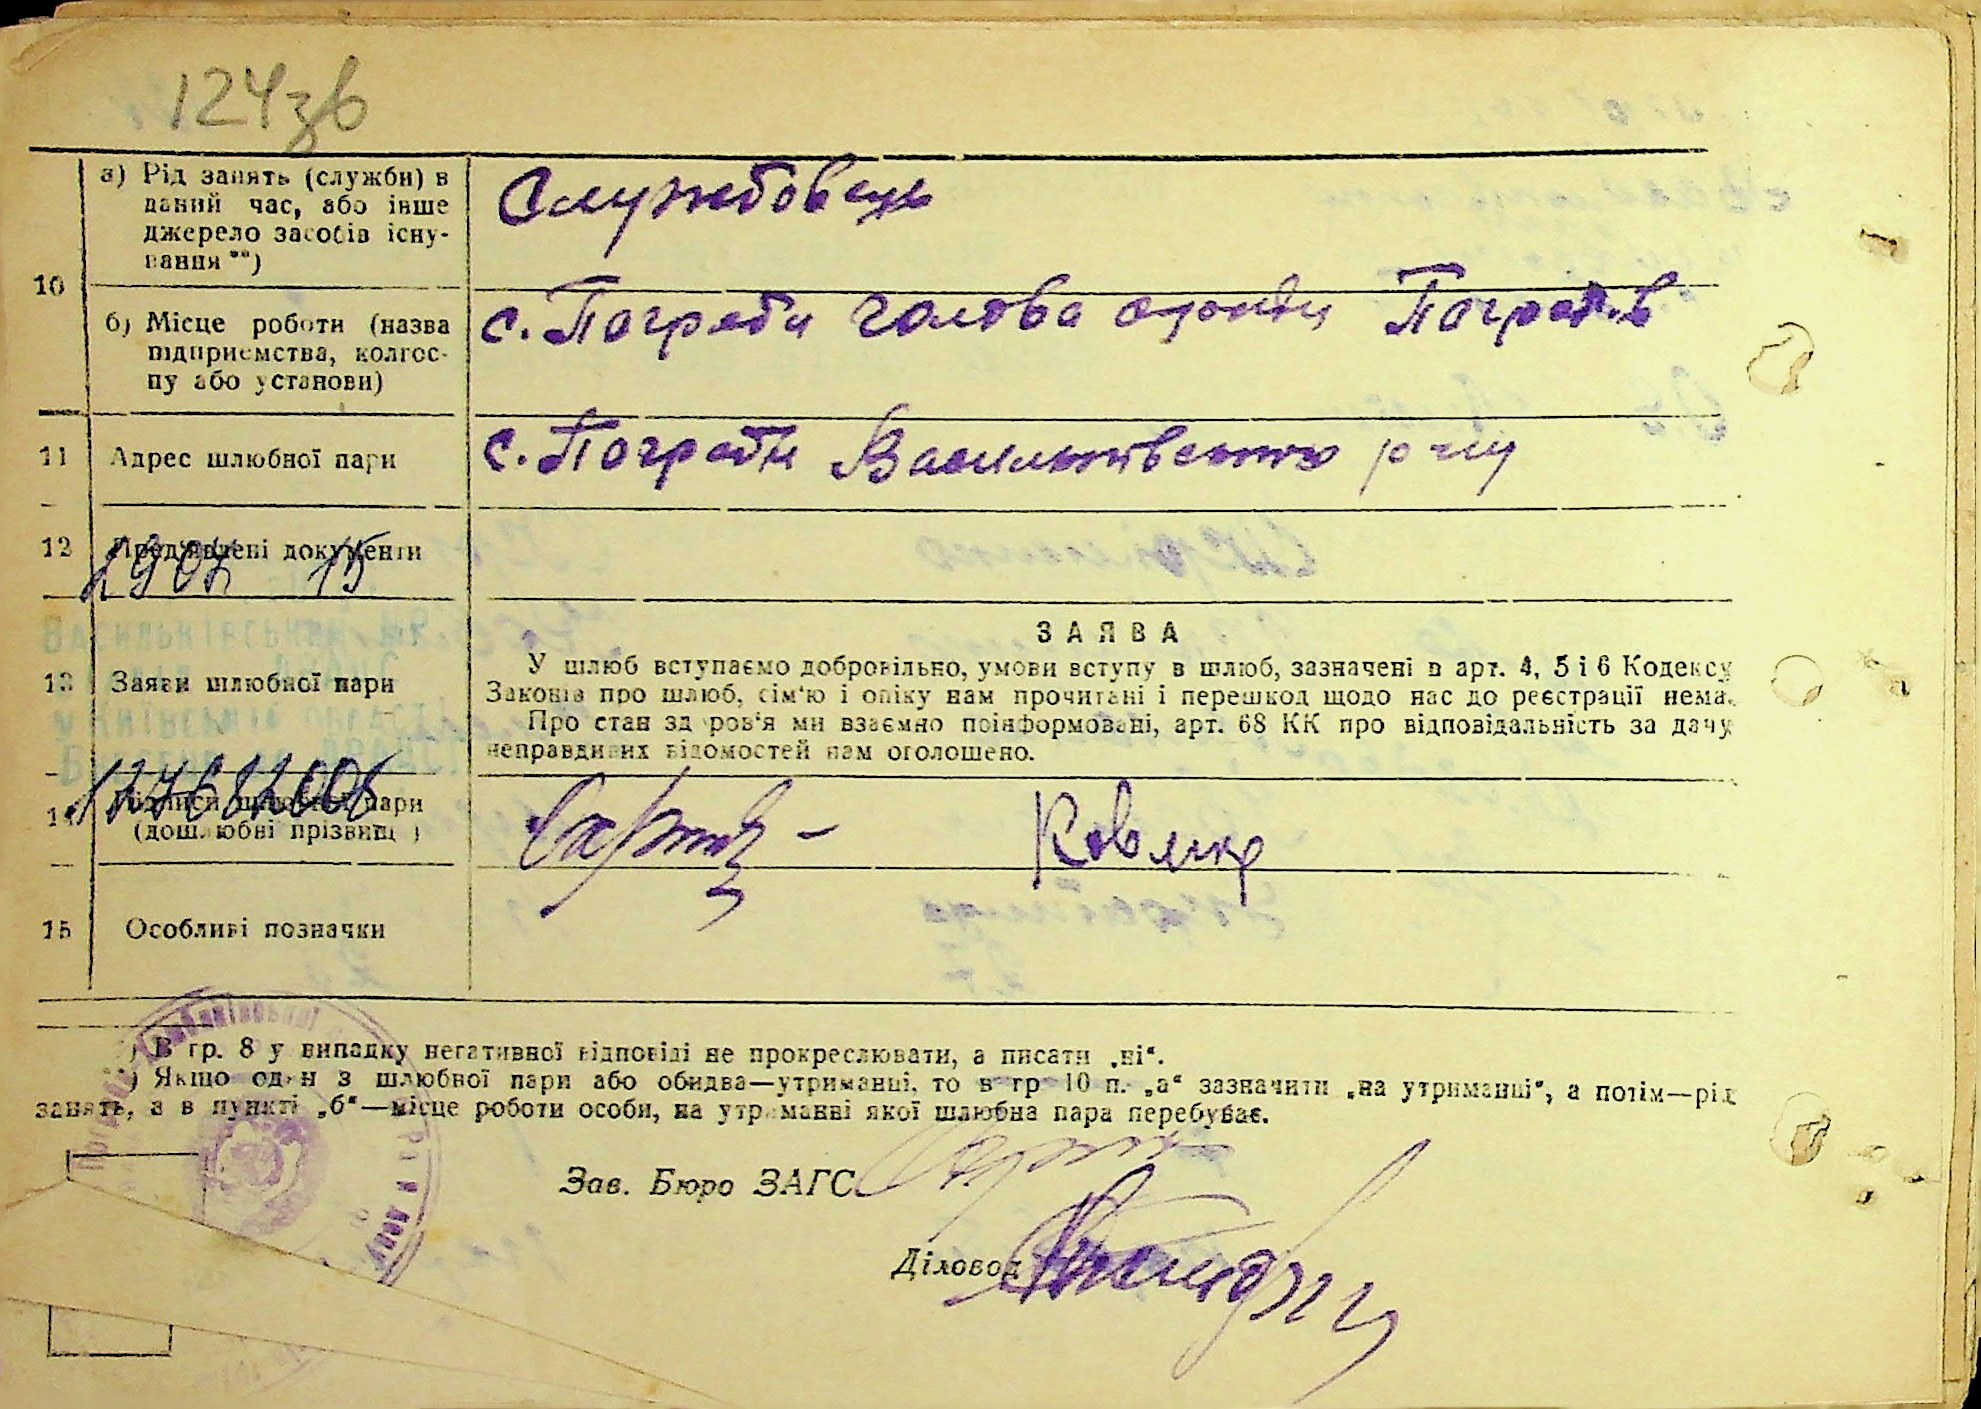 124зв
10
а) Рід занять (служби) в
даний час, або інше
джерело засобів існу-
вання **)
Службовець
б) Місце роботи (назва
підприємства, колгос-
пу або установи)
с. Погреби голова
11
Адрес шлюбної пари
с. Погреби Васильківського р-ну
12
Пред'явлені документи
1907 15
13
Заяви шлюбної пари
ЗАЯВА
У шлюб вступаємо добровільно, умови вступу в шлюб, зазначені в арт. 4, 5 і 6 Кодексу
Законів про шлюб, сім'ю і опіку нам прочитані і перешкод щодо нас до реєстрації нема.
Про стан здоров'я ми взаємно поінформовані, арт. 68 КК про відповідальність за дачу
неправдивих відомостей нам оголошено.
127682006
14
Підписи шлюбної пари
(дошлюбні прізвищ )
15
Особливі позначки
*) В гр. 8 у випадку негативної відповіді не прокреслювати, а писати „ні“.
**) Якщо один з шлюбної пари або обидва—утриманці, то в гр 10 п. „а“ зазначити „на утриманні“, а потім—рід
занять, а в пункті „б“—місце роботи особи, на утриманні якої шлюбна пара перебуває.
Зав. Бюро ЗАГС
Діловод